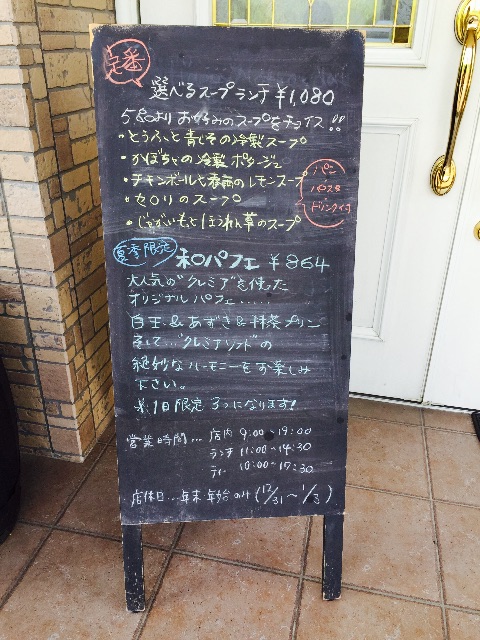 定番
選べるスープランチ ¥1,080
5色より お好みのスープをチョイス!!
・とうふと青じその冷製スープ
・かぼちゃの冷製ポタージュ
・チキンボールと春雨のレモンスープ
・セロリのスープ
・じゃがいもとほうれん草のスープ
パン
パスタ
ドリンク付
夏季限定
和パフェ ¥864
大人気の"クレミア"を使った
オリジナルパフェ......
白玉&あずき&抹茶プリン
そして..."クレミアソフト"の
絶妙なハーモニーをお楽しみ
下さい。
※1日限定 3つになります!
営業時間... 店内 9:00~19:00
ランチ 11:00~14:30
ティー 10:00~17:30
店休日...年末年始のみ(12/31~1/3)